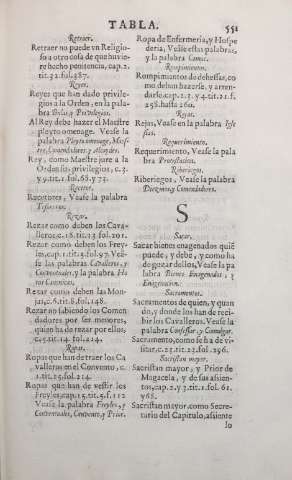 TABLA. 551
Retraer.
Retraer no puede vn Religio-
so a otro cosa de que huuie-
re hecho penitencia, cap. 2.
tit. 32. fol. 387.
Reyes.
Reyes que han dado priuile-
gios a la Orden, en la pala-
bra Bulas, y Priuilegios.
Al Rey debe hazer el Maestre
pleyto omenage. Vease la
palabra Pleyto omenage, Maes-
tre, Comendadores, y Alcaydes.
Rey, como Maestre jure a la
Orden sus priuilegios, c. 3.
y 4. tit. 1. fol. 68. y 73.
Recetor.
Recetores, Vease la palabra
Tesorero.
Rezar.
Rezar como deben los Caua-
lleros c. 18. tit. 13. fol. 201.
Rezar como deben los Frey-
les, cap. 1. tit. 4. fol. 97. Vea-
se las palabras Caualleros, y
Conuentuales, y la palabra Ho
ras Canonicas.
Rezar como deben las Mon-
jas, c. 6. tit. 8. fol. 148.
Rezar no sabiendo los Comen
dadores por ser menores,
quien ha de rezar por ellos,
c. 5. tit. 14. fol. 214.
Ropas.
Ropas que han de traer los Ca
ualleros en el Conuento, c.
1. tit. 15. fol. 214.
Ropas que han de vestir los
Freyles, cap. 15. tit. 5. f. 112
Vease la palabra Freyles, y
Conuentuales, Conuento, y Prior.
Ropa de Enfermeria, y Hospe
deria, Vease estas palabras,
y la palabra Camas.
Rompimientos.
Rompimientos de dehessas, co
mo deban hazerse, y arren-
darse, cap. 2. 3. y 4. tit. 21. f.
258. hasta 260.
Rejas.
Rejas, Vease en la palabra Igle
sias.
Requerimiento.
Requerimiento, Vease la pala
bra Protestacion.
Riberiegos.
Riberiegos, Vease la palabra
Diezmos, y Comendadores.
S
Sacar.
Sacar bienes enagenados quië
puede, y debe, y como ha
de gozar dellos, Vease la pa
labra Bienes Enagenados, y
Enagenacion.
Sacramentos.
Sacramentos de quien, y quan
do, y donde los han de reci-
bir los Caualleros. Vease la
palabra Confessar, y Comulgar.
Sacramento, como se ha de vi-
sitar, c. 23. tit. 23. fol. 296.
Sacristan mayor.
Sacristan mayor, y Prior de
Magacela, y de sus assien-
tos, cap. 2. tit. 1. c. fol. 61.
y 68.
Sacristan mayor, como Secre-
tario del Capitulo, assiente
lo